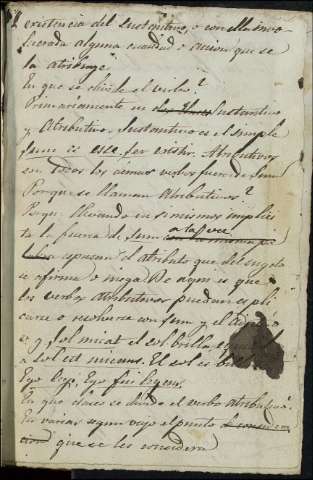 existencia del sustantivo, o con ella invo
lucrada alguna cualidad o accion que se
la atribuye.
En que se divide el verbo?
Primeramente en Sustantivo
y Atributivo. Sustantivo es el simple
Sum es esse ser existir. Atributivos
son todos los demas verbos fuera de Sum
Porque se llaman Atributivos?
Porque llevando en si mismos implici
ta la fuerza de Sum a la vez
espresan el atributo que del sugeto
se afirma o niega De aqui es que
los verbos atributivos puedan espli
carse o resolverse con sum y el
v. g. Sol micat el sol brilla
a sol est micans. El sol es
Ego lego, Ego fui legens.
En que clases se divide el verbo atributivo?
En varias segun sea el punto de
que se les considera